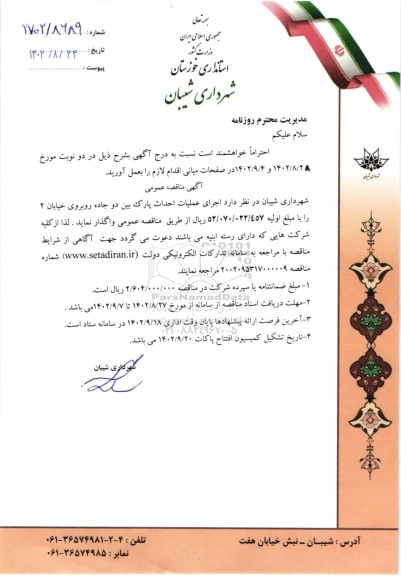 بسمه تعالی
جمهوری اسلامی ایران
وزارت کشور
استانداری خوزستان
شهرداری شیبان
شماره : ۱۷۰۲/۸۶۸۹
تاریخ : ۱۴۰۲/۸/۲۴
پیوست :
مدیریت محترم روزنامه
سلام علیکم
احتراماً خواهشمند است نسبت به درج آگهی بشرح ذیل در دو نوبت مورخ
۱۴۰۲/۸/۲۸ و ۱۴۰۲/۹/۴در صفحات میانی اقدام لازم را بعمل آورید.
آگهی مناقصه عمومی
شهرداری شیبان در نظر دارد اجرای عملیات احداث پارک بین دو جاده روبروی خیابان ۲
را با مبلغ اولیه ۵۲/۰۷۰/۰۲۲/۴۵۷ ریال از طریق مناقصه عمومی واگذار نماید . لذا ازکلیه
شرکت هایی که دارای رسته ابنیه می باشند دعوت می گردد جهت آگاهی از شرایط
مناقصه با مراجعه به سامانه تدارکات الکترونیکی دولت (www.setadiran.ir) شماره
مناقصه ۲۰۰۲۰۹۵۳۱۷۰۰۰۰۰۹ مراجعه نمایند.
۱-مبلغ ضمانتنامه یا سپرده شرکت در مناقصه ۲/۶۰۴/۰۰۰/۰۰۰ ریال است.
۲-مهلت دریافت اسناد مناقصه از سامانه از مورخ ۱۴۰۲/۸/۲۷ تا ۱۴۰۲/۹/۷می باشد .
۳-آخرین فرصت ارائه پیشنهادها پایان وقت اداری ۱۴۰۲/۹/۱۸ در سامانه ستاد است.
۴-تاریخ تشکیل کمیسیون افتتاح پاکات ۱۴۰۲/۹/۲۰ می باشد.
شهرداری شیبان
ParsNamadData
۰۲۱-۸۸۳۴۹۶۷۰-۵
آدرس : شیبـان ـ نبش خیابان هفت
تلفن : ۴-۲-۳۶۵۷۴۹۸۱-۰۶۱
نمابر : ۳۶۵۷۴۹۸۵-۰۶۱